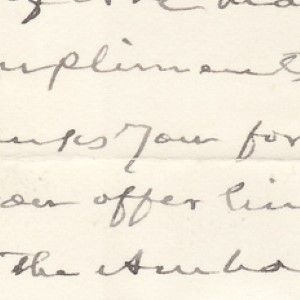 mpliments
nks you for
ou offer him
the Amba